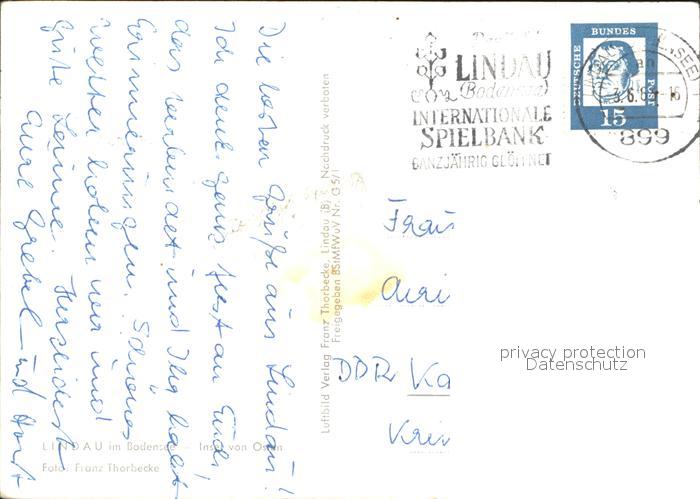 Die besten Grüße aus Lindau!
Ich denk ganz fest an Euch!
das verbindet und Ihr habt
Erinnerungen. Schönes
wetter haben wir und
gute Laune. Herzlichst
Eure Gretel und Horst
LINDAU im Bodensee - Insel von Osten
Foto: Franz Thorbecke
Luftbild Verlag Franz Thorbecke, Lindau (B) Nachdruck verboten
Freigegeben BStMfWuV Nr. G 5/1
LINDAU
(Bodensee)
INTERNATIONALE
SPIELBANK
GANZJÄHRIG GEÖFFNET
DEUTSCHE BUNDESPOST
15
899
Frau
DDR
privacy protection
Datenschutz